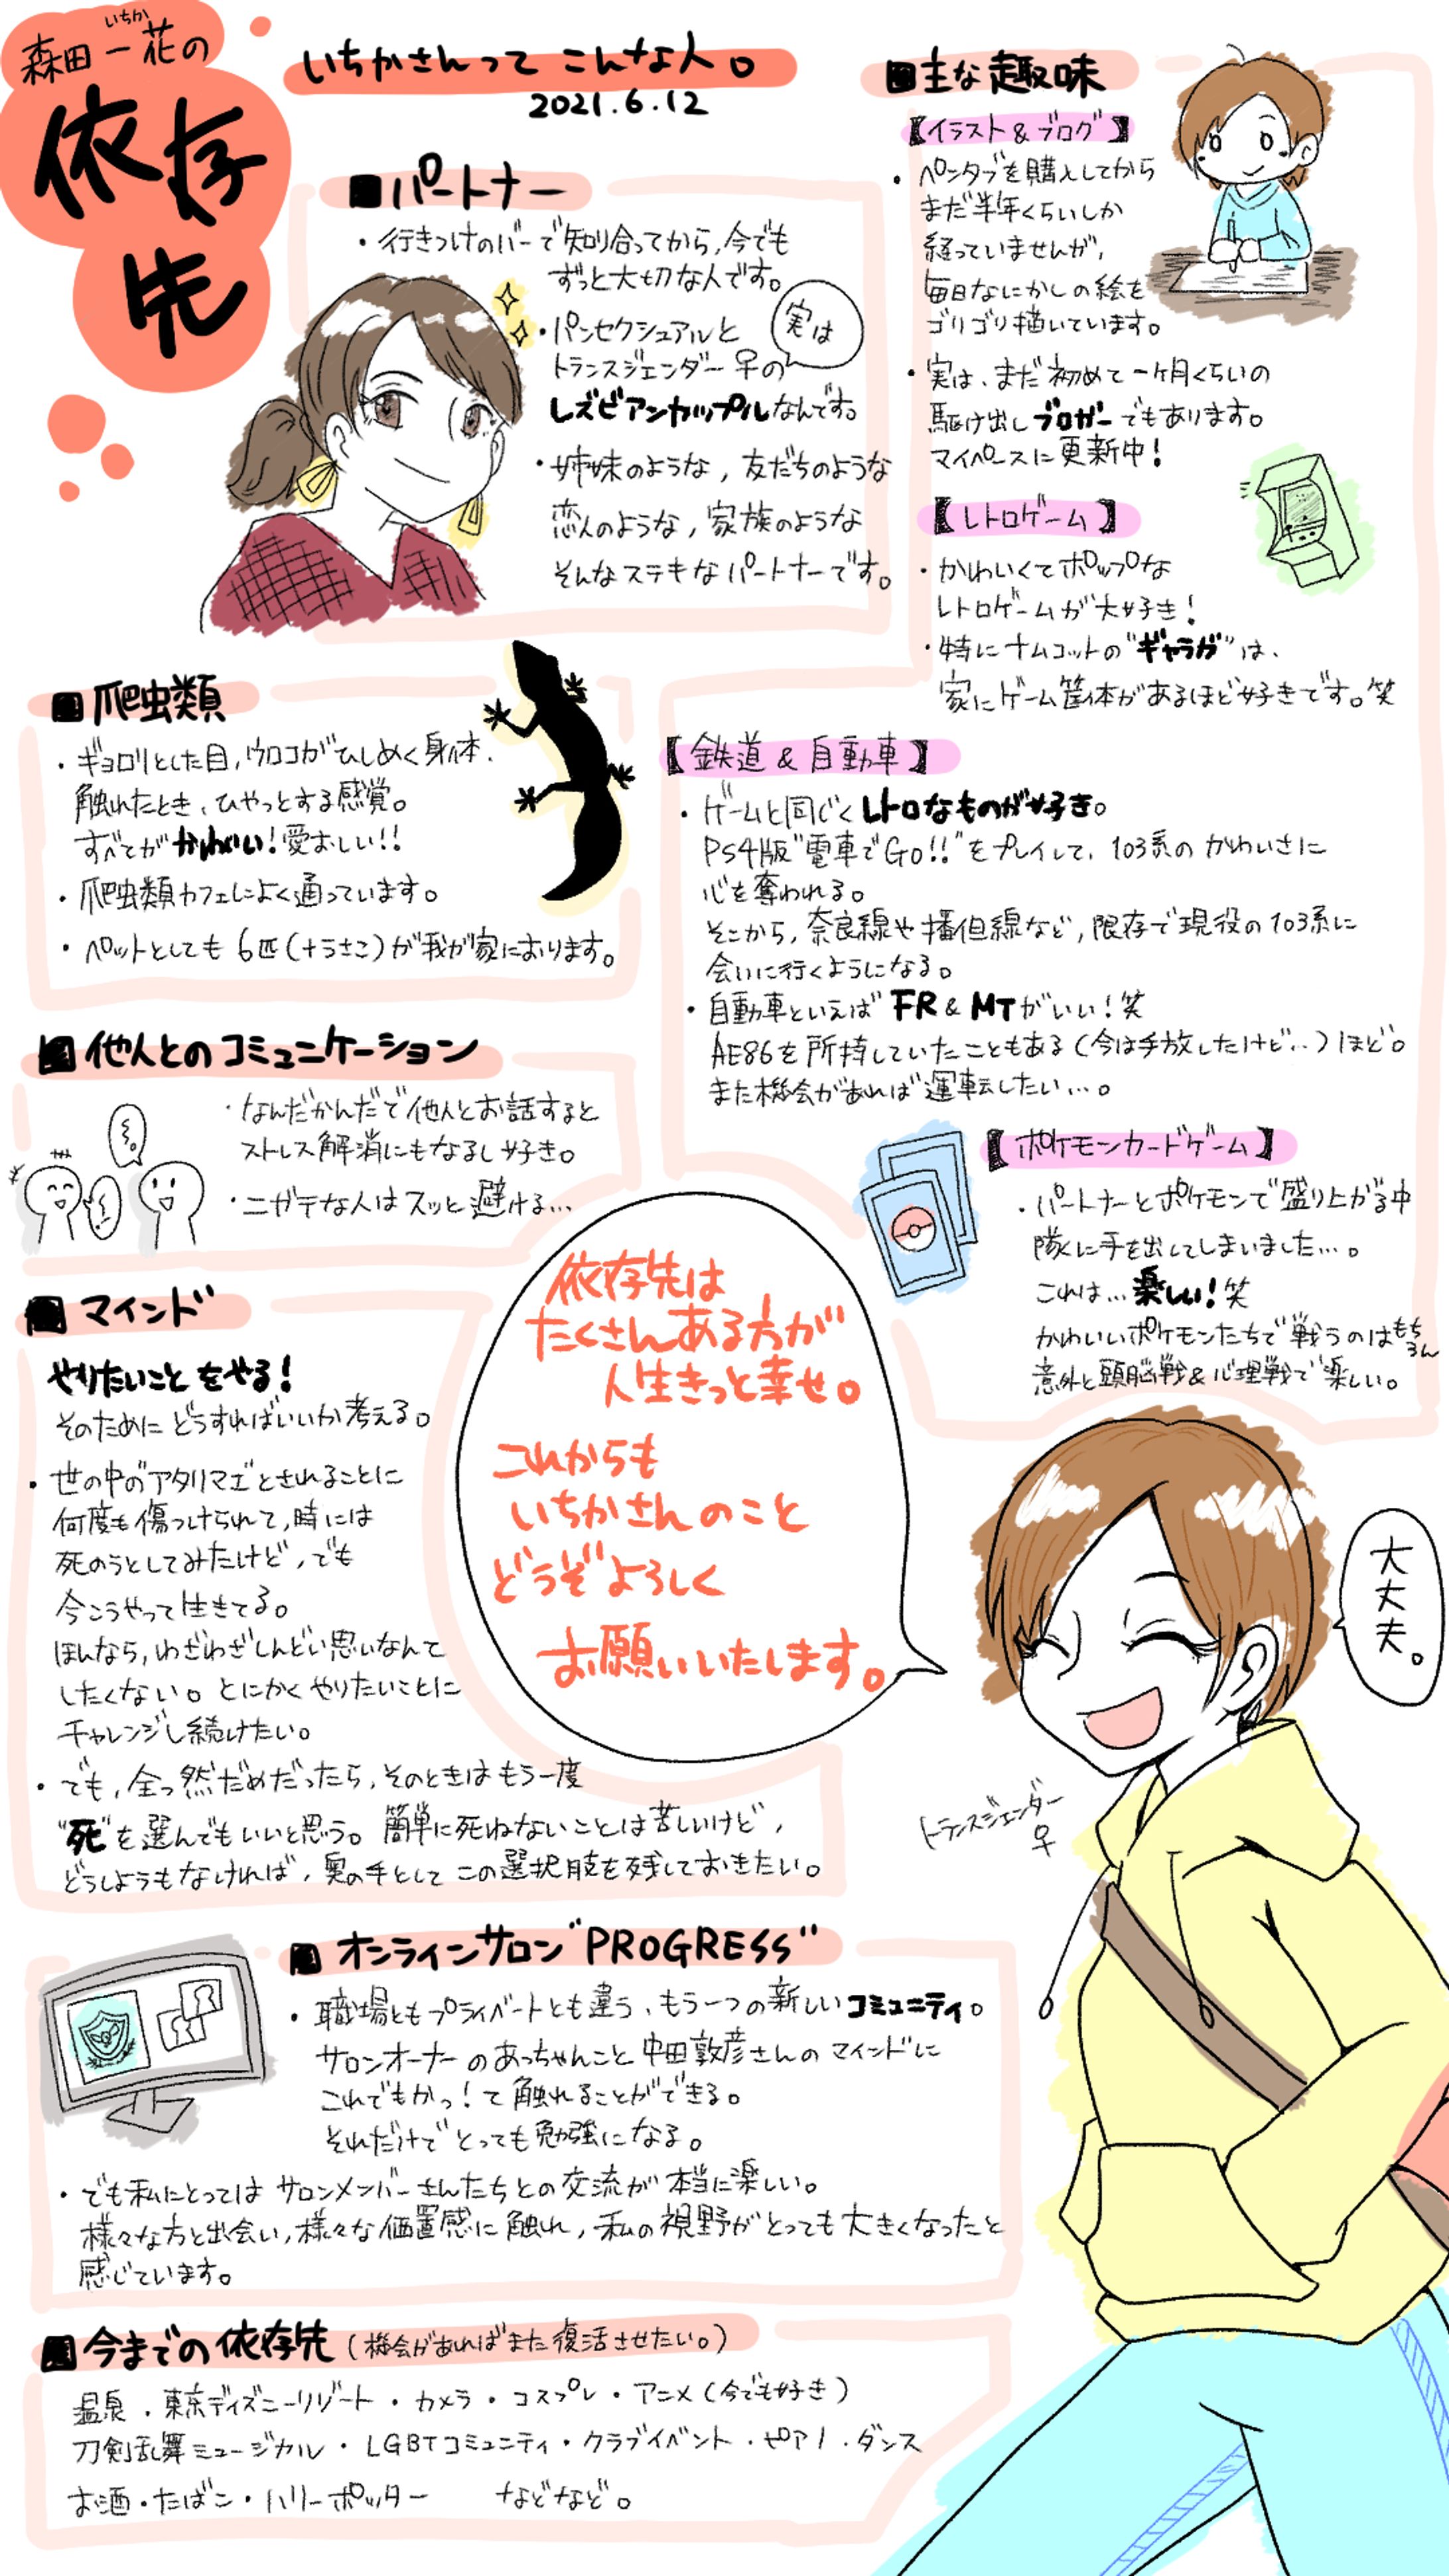 森田一花の
いちか
依存先
いちかさんって こんな人。
2021.6.12
■パートナー
・行きつけのバーで知り合ってから,今でも
ずっと大切な人です。
実は
・パンセクシュアルと
トランスジェンダー♀の
レズビアンカップルなんです。
・姉妹のような,友だちのような
恋人のような,家族のような
そんなステキなパートナーです。
■主な趣味
【イラスト&ブログ】
・ペンタブを購入してから
まだ半年くらいしか
経っていませんが,
毎日なにかしの絵を
ゴリゴリ描いています。
・実は、まだ初めて一ヶ月くらいの
駆け出しブロガーでもあります。
マイペースに更新中!
【レトロゲーム】
・かわいくてポップな
レトロゲームが大好き!
・特にナムコットの"ギャラガ"は、
家にゲーム筐体があるほど好きです。笑
■爬虫類
・ギョロリとした目,ウロコがひしめく身体、
触れたとき、ひやっとする感覚。
すべてがかわいい!愛おしい!!
・爬虫類カフェによく通っています。
・ペットとしても6匹(+うさこ)が我が家におります。
【鉄道&自動車】
・ゲームと同じくレトロなものが好き。
PS4版"電車でGo!!"をプレイして、103系のかわいさに
心を奪われる。
そこから,奈良線や播但線など,限存で現役の103系に
会いに行くようになる。
・自動車といえばFR&MTがいい!笑
AE86を所持していたこともある(今は手放したけど…)ほど。
また機会があれば運転したい…。
■他人とのコミュニケーション
・なんだかんだで他人とお話すると
ストレス解消にもなるし好き。
・ニガテな人はスッと避ける…
【ポケモンカードゲーム】
・パートナーとポケモンで盛り上がる中
隊に手を出してしまいました…。
これは…楽しい!笑
かわいいポケモンたちで戦うのはもちろん
意外と頭脳戦&心理戦で楽しい。
■マインド
やりたいことをやる!
そのためにどうすればいいか考える。
・世の中のアタリマエとされることに
何度も傷つけられて,時には
死のうとしてみたけど,でも
今こうやって生きてる。
ほんなら,わざわざしんどい思いなんて
したくない。とにかくやりたいことに
チャレンジし続けたい。
・でも,全っ然だめだったら,そのときはもう一度
"死"を選んでもいいと思う。簡単に死ねないことは苦しいけど,
どうしようもなければ,奥の手としてこの選択肢を残しておきたい。
依存先は
たくさんある方が
人生きっと幸せ。
これからも
いちかさんのこと
どうぞよろしく
お願いいたします。
大丈夫。
トランスジェンダー
♀
■オンラインサロン"PROGRESS"
・職場ともプライベートとも違う、もう一つの新しいコミュニティ。
サロンオーナーのあっちゃんこと中田敦彦さんのマインドに
これでもかっ!て触れることができる。
それだけでとっても勉強になる。
・でも私にとってはサロンメンバーさんたちとの交流が本当に楽しい。
様々な方と出会い,様々な価置感に触れ,私の視野がとっても大きくなったと
感じています。
■今までの依存先(機会があればまた復活させたい。)
温泉・東京ディズニーリゾート・カメラ・コスプレ・アニメ(今でも好き)
刀剣乱舞ミュージカル・LGBTコミュニティ・クラブイベント・ピアノ・ダンス
お酒・たばこ・ハリーポッター などなど。